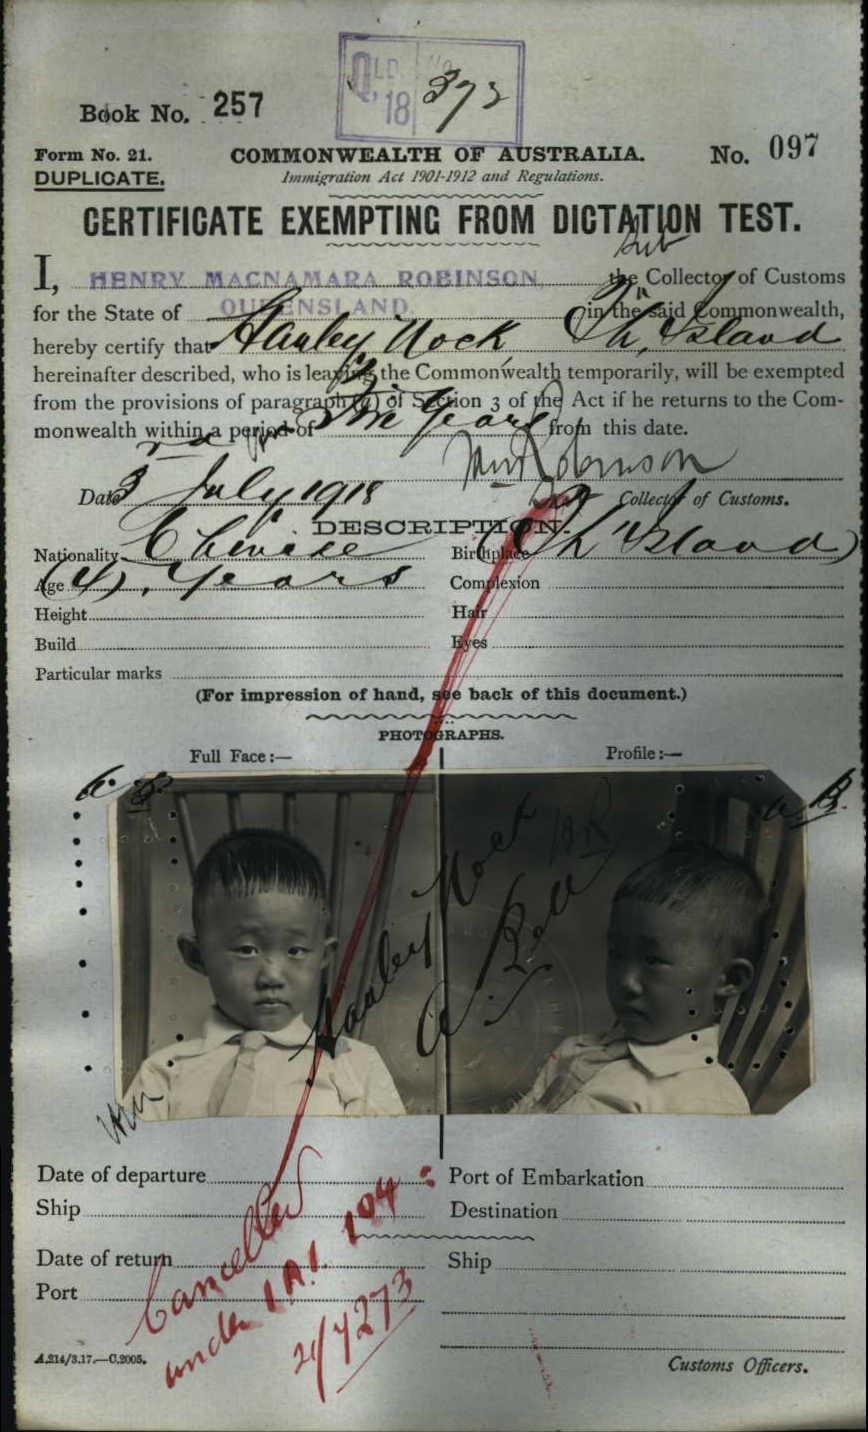 QLD No
'18 372
Book No. 257
Form No. 21.
COMMONWEALTH OF AUSTRALIA.
No. 097
DUPLICATE.
Immigration Act 1901-1912 and Regulations.
CERTIFICATE EXEMPTING FROM DICTATION TEST.
Sub
I, HENRY MACNAMARA ROBINSON, the Collector of Customs
for the State of QUEENSLAND in the said Commonwealth,
hereby certify that Stanley Nock Th, Island
hereinafter described, who is leaving the Commonwealth temporarily, will be exempted
from the provisions of paragraph (a) of Section 3 of the Act if he returns to the Com-
monwealth within a period of Years from this date.
Robinson
Date 3 July 1918
Collector of Customs.
DESCRIPTION.
Nationality Chinese
Birthplace (Th Island)
Age (4) Years
Complexion
Height
Hair
Build
Eyes
Particular marks
(For impression of hand, see back of this document.)
PHOTOGRAPHS.
Full Face:—
Profile:—
Stanley Nock
Date of departure
Port of Embarkation
Ship
Destination
Date of return
Ship
Port
Cancelled
under
A.214/3.17.—C.2005.
Customs Officers.